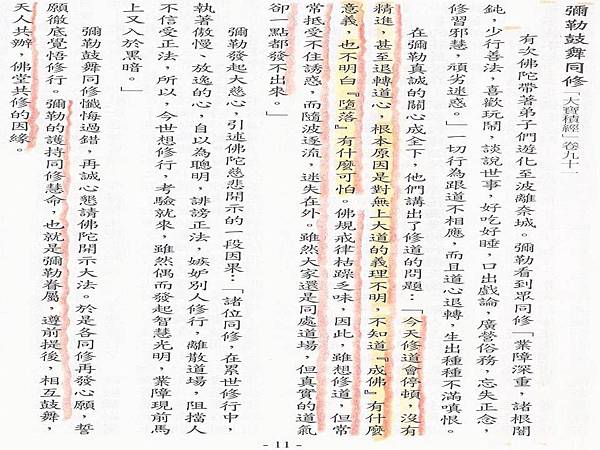 彌勒鼓舞同修「大寶積經」卷九十一
有次佛陀帶著弟子們遊化至波離奈城。彌勒看到眾同修「業障深重，諸根闇
鈍，少行善法，喜歡玩鬧，談說世事，好吃好睡，口出戲論，廣營俗務，忘失正念，
修習邪慧，頑劣迷惑。」一切行為跟道不相應，而且道心退轉，生出種種不滿嗔恨。
在彌勒真誠的關心成全下，他們講出了修道的問題：「今天修道會停頓，沒有
精進，甚至退轉道心，根本原因是對無上大道的義理不明，不知道『成佛』有什麼
意義，也不明白『墮落』有什麼可怕。佛規戒律枯躁乏味，因此，雖想修道，但常
常抵受不住誘惑，而隨波逐流，迷失在外。雖然大家還是同處道場，但真實的道氣
卻一點都發不出來。」
彌勒發起大慈心，引述佛陀慈悲開示的一段因果：「諸位同修，在累世修行中，
執著傲慢、放逸的心，自以為聰明，誹謗正法，嫉妒別人修行，離散道場，阻擋人
不信受正法，所以，今世想修行，考驗就來，雖然偶而發起智慧光明，業障現前馬
上又入於黑暗。」
彌勒鼓舞同修懺悔過錯，再誠心懇請佛陀開示大法。於是各同修再發心願，誓
願徹底覺悟修行。彌勒的護持同修慧命，也就是彌勒眷屬，遵前提後，相互鼓舞，
天人共辦，佛堂共修的因緣。
- 11 -